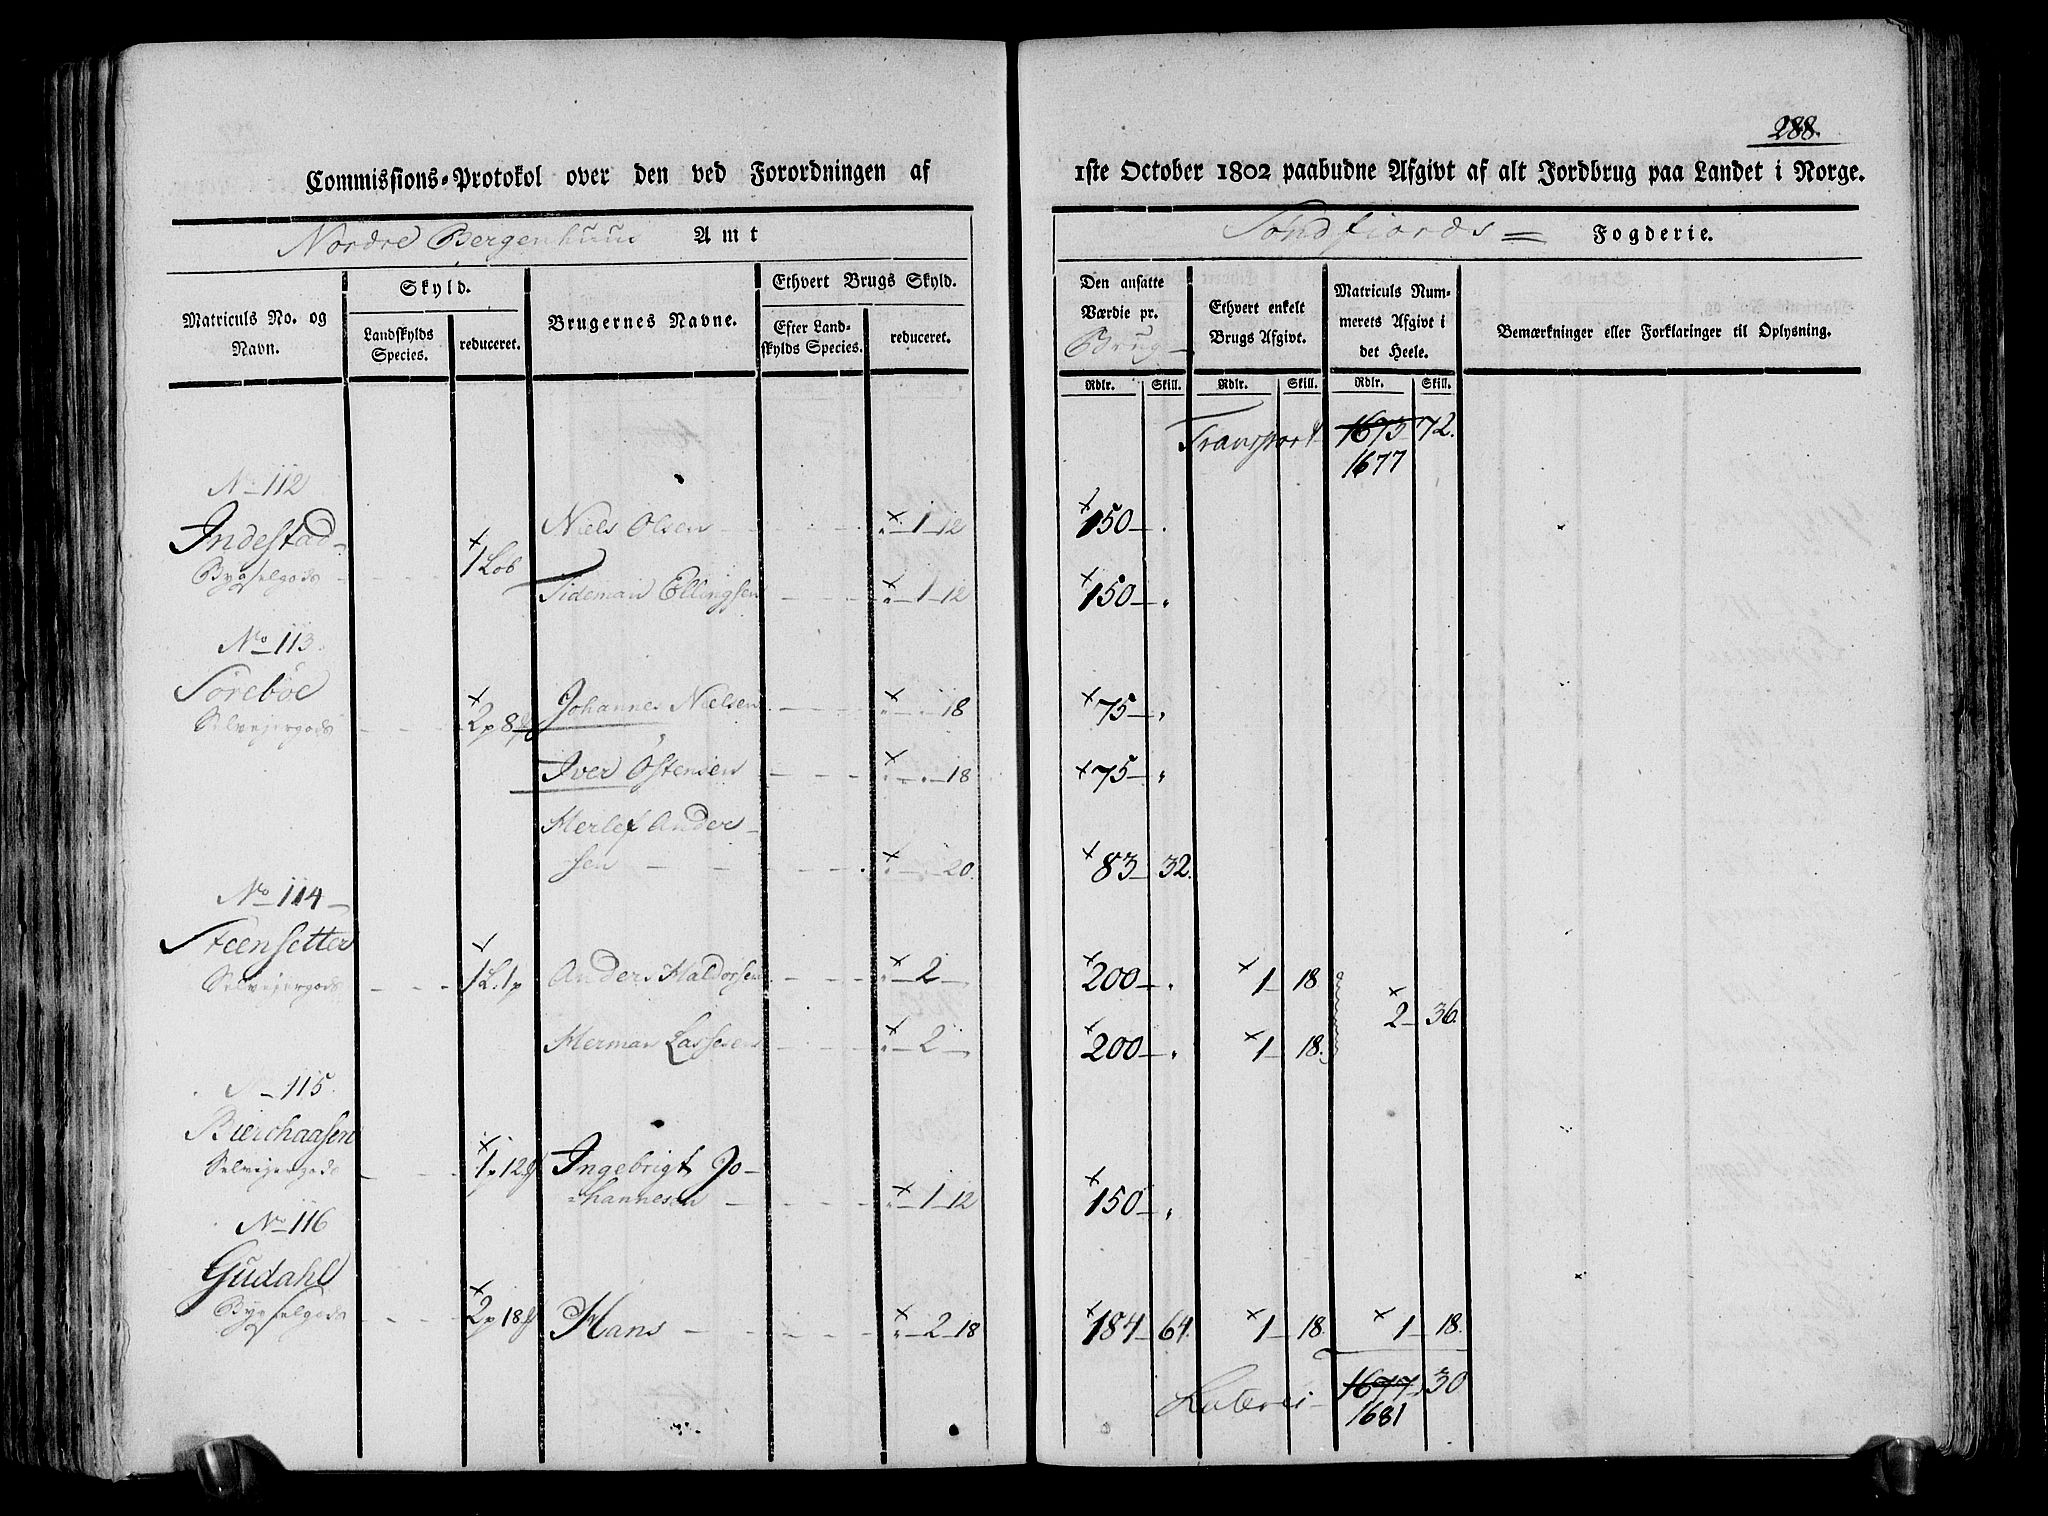 288.
Commissions-Protokol over den ved Forordningen af 1ste October 1802 paabudne Afgivt af alt Jordbrug paa Landet i Norge.
Nordre Bergenhuus Amt Sondfiords Fogderie.
Matriculs No. og Navn. Skyld. Landskylds Species. reduceret. Brugernes Navne. Ethvert Brugs Skyld. Efter Landskylds Species. reduceret. Den ansatte Værdie pr. Brug Ethvert enkelt Brugs Afgivt. Matriculs Nummerets Afgivt i det Heele. Bemærkninger eller Forklaringer til Oplysning.
Rdlr. Skill. Rdlr. Skill. Rdlr. Skill.
Transport 1675 72.
1677
No 112
Indestad Niels Olsen 1 12 150
Bygselgods 1 Lob
Tideman Ellingsen 1 12 150
No 113.
Söreböe
Selvejergods 2 p 8 Johannes Nielsen 18 75
Iver Östensen 18 75
Herlef Ander-
sen 20. 83 32.
No 114
Steensetter
Selvejergods 1 L. 1 p Anders Haldorsen 2 200 1 18
2 36.
Herman Lassesen 2 200 1 18.
No 115.
Bierchaasen
Selvejergods 1 p 12 Ingebrigt Jo-
hannesen 1 12 150
No 116
Gudahl
Bygselgods 2 p 18 Hans 2 18 184 64. 1 18. 1 18.
Lateris 1677 30
1681